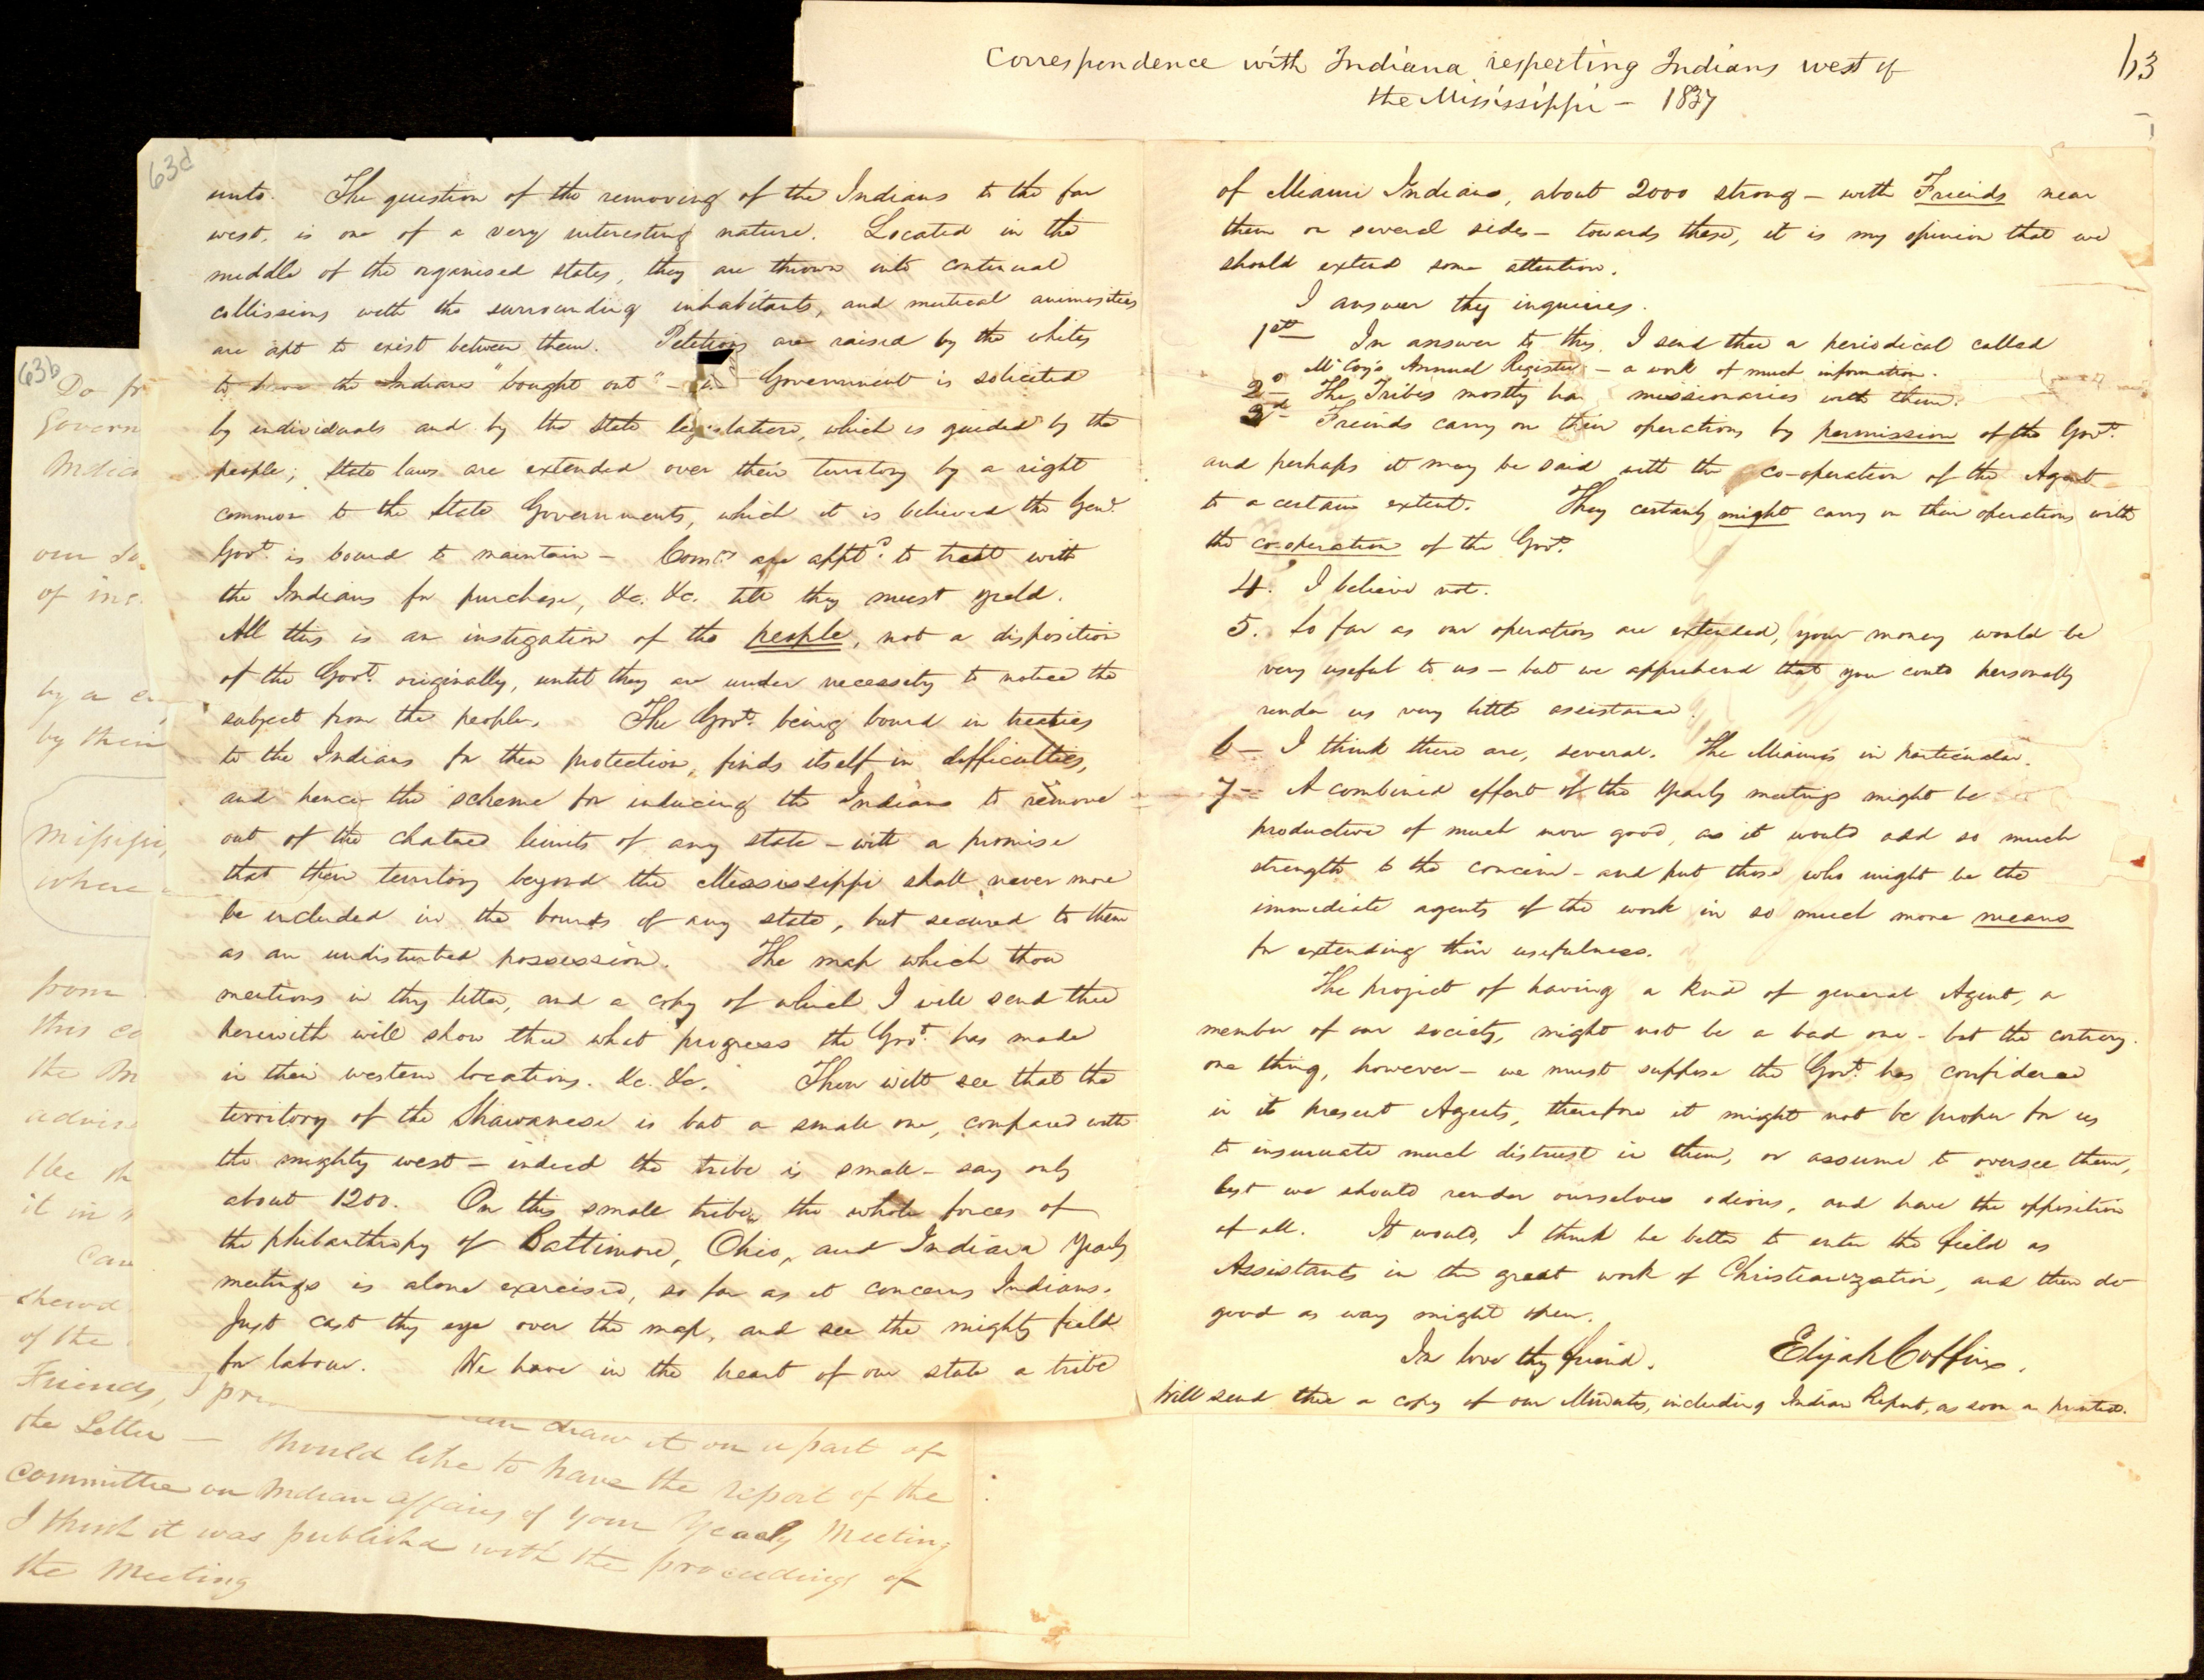 Correspondence with Indiana respecting Indians west of
the Mississippi — 1837
63
63d
unto. The question of the removing of the Indians to the far
west, is one of a very interesting nature. Located in the
middle of the organised states, they are thrown into continual
collissions with the surrounding inhabitants, and mutual animosities
are apt to exist between them. Petitions are raised by the whites
to have the Indians "bought out" — Government is solicited
by individuals and by the State legislature, which is guided by the
people; State laws are extended over their territory by a right
common to the State Governments, which it is believed the Genl.
Govt. is bound to maintain — Comrs. are apptd. to treat with
the Indians for purchase, &c. &c. till they must yield.
All this is an instigation of the people, not a disposition
of the Govt. originally, until they are under necessity to notice the
subject from the people. The Govt. being bound in treaties
to the Indians for their protection, finds itself in difficulties,
and hence the scheme for inducing the Indians to remove
out of the chatred limits of any state — with a promise
that their territory beyond the Mississippi shall never more
be included in the bounds of any state, but secured to them
as an undisturbed possession. The map which thou
mentions in thy letter, and a copy of which I will send thee
herewith will show thee what progress the Govt. has made
in their western locations. &c. &c. Thou wilt see that the
territory of the Shawanese is but a small one, compared with
the mighty west — indeed the tribe is small — say only
about 1200. On this small tribe, the whole forces of
the philanthropy of Baltimore, Ohio, and Indiana Yearly
meetings is alone exercised, so far as it concerns Indians.
Just cast thy eye over the map, and see the mighty field
for labour. We have in the heart of our state a tribe
of Miami Indians, about 2000 strong — with Friends near
them on several sides — towards these, it is my opinion that we
should extend some attention.
I answer thy inquiries.
1st — In answer to this, I send thee a periodical called
McCoy's Annual Register — a work of much information.
2d — The Tribes mostly have missionaries with them.
3d — Friends carry on their operations by permission of the Govt.
and perhaps it may be said with the co-operation of the Agent
to a certain extent. They certainly might carry on their operations with
the co-operation of the Govt.
4. I believe not.
5. So far as our operations are extended, your money would be
very useful to us — but we apprehend that you could personally
render us very little assistance.
6 — I think there are, several. The Miamis in particular.
7 — A combined effort of the Yearly meetings might be
productive of much more good, as it would add so much
strength to the concern — and put those who might be the
immediate agents of the work in so much more means
for extending their usefulness.
The project of having a kind of general Agent, a
member of our society, might not be a bad one — but the contrary.
one thing, however — we must suppose the Govt. has confidence
in its present Agents, therefore it might not be proper for us
to insinuate much distrust in them, or assume to oversee them,
lest we should render ourselves odious, and have the opposition
of all. It would, I think be better to enter the field as
Assistants in the great work of Christianization, and then do
good as way might open.
In love thy friend. Elijah Coffin.
Will send thee a copy of our Minutes, including Indian Report, as soon as printed.
63b
Do
Govern
Indian
our
of
by a
by their
Missisippi,
where
from
this
the
advise
the
it in
Can
of the
Friends, I
draw it on a part of
the Letter — Should like to have the report of the
Committee on Indian affairs of your Yearly Meeting
I think it was published with the proceedings of
the Meeting